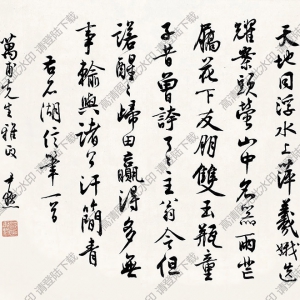 天地同浮水上萍羲娥迭
耀案頭螢山中名器兩芒
屩花下友朋雙玉瓶童
子昔曾誇了了主翁今但
諾醒醒歸田贏得多無
事輸與諸公汗簡青
右石湖信筆一首
萬甫先生雅正 尹默